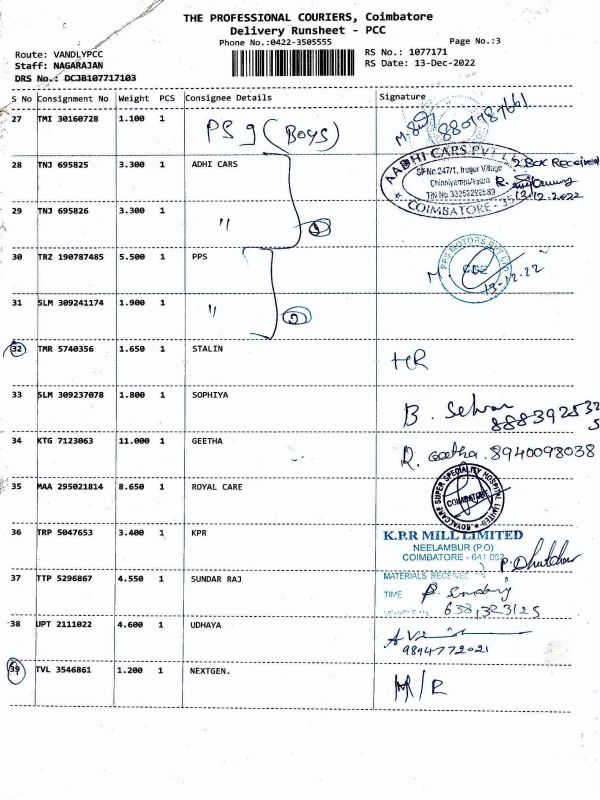 THE PROFESSIONAL COURIERS, Coimbatore
Delivery Runsheet - PCC
Phone No.:0422-3505555
Page No.:3
Route: VANDLYPCC
RS No.: 1077171
Staff: NAGARAJAN
RS Date: 13-Dec-2022
DRS No.: DCJB107717103
S No Consignment No Weight PCS Consignee Details Signature
27 TMI 30160728 1.100 1 PSG (BOYS)
28 TNJ 695825 3.300 1 ADHI CARS
AADHI CARS PVT LTD
2 BOX Received
SF No. 247/1, Irugur Village
COIMBATORE - 35
29 TNJ 695826 3.300 1 "
30 TRZ 190787485 5.500 1 PPS
PPS MOTORS PVT LTD
CBE
13-12.22
31 SLM 309241174 1.900 1 " 2
32 TMR 5740356 1.650 1 STALIN HR
33 SLM 309237078 1.800 1 SOPHIYA B. Selvan
34 KTG 7123063 11.000 1 GEETHA R. Geetha. 8940098038
35 MAA 295021814 8.650 1 ROYAL CARE
ROYALCARE SUPER SPECIALITY HOSPITAL LIMITED
COIMBATORE
36 TRP 5047653 3.400 1 KPR
K.P.R MILL LIMITED
NEELAMBUR (P.O)
COIMBATORE - 641 062
37 TTP 5296867 4.550 1 SUNDAR RAJ
MATERIALS RECEIVED
TIME
38 UPT 2111022 4.600 1 UDHAYA
9894772021
39 TVL 3546861 1.200 1 NEXTGEN. M/R